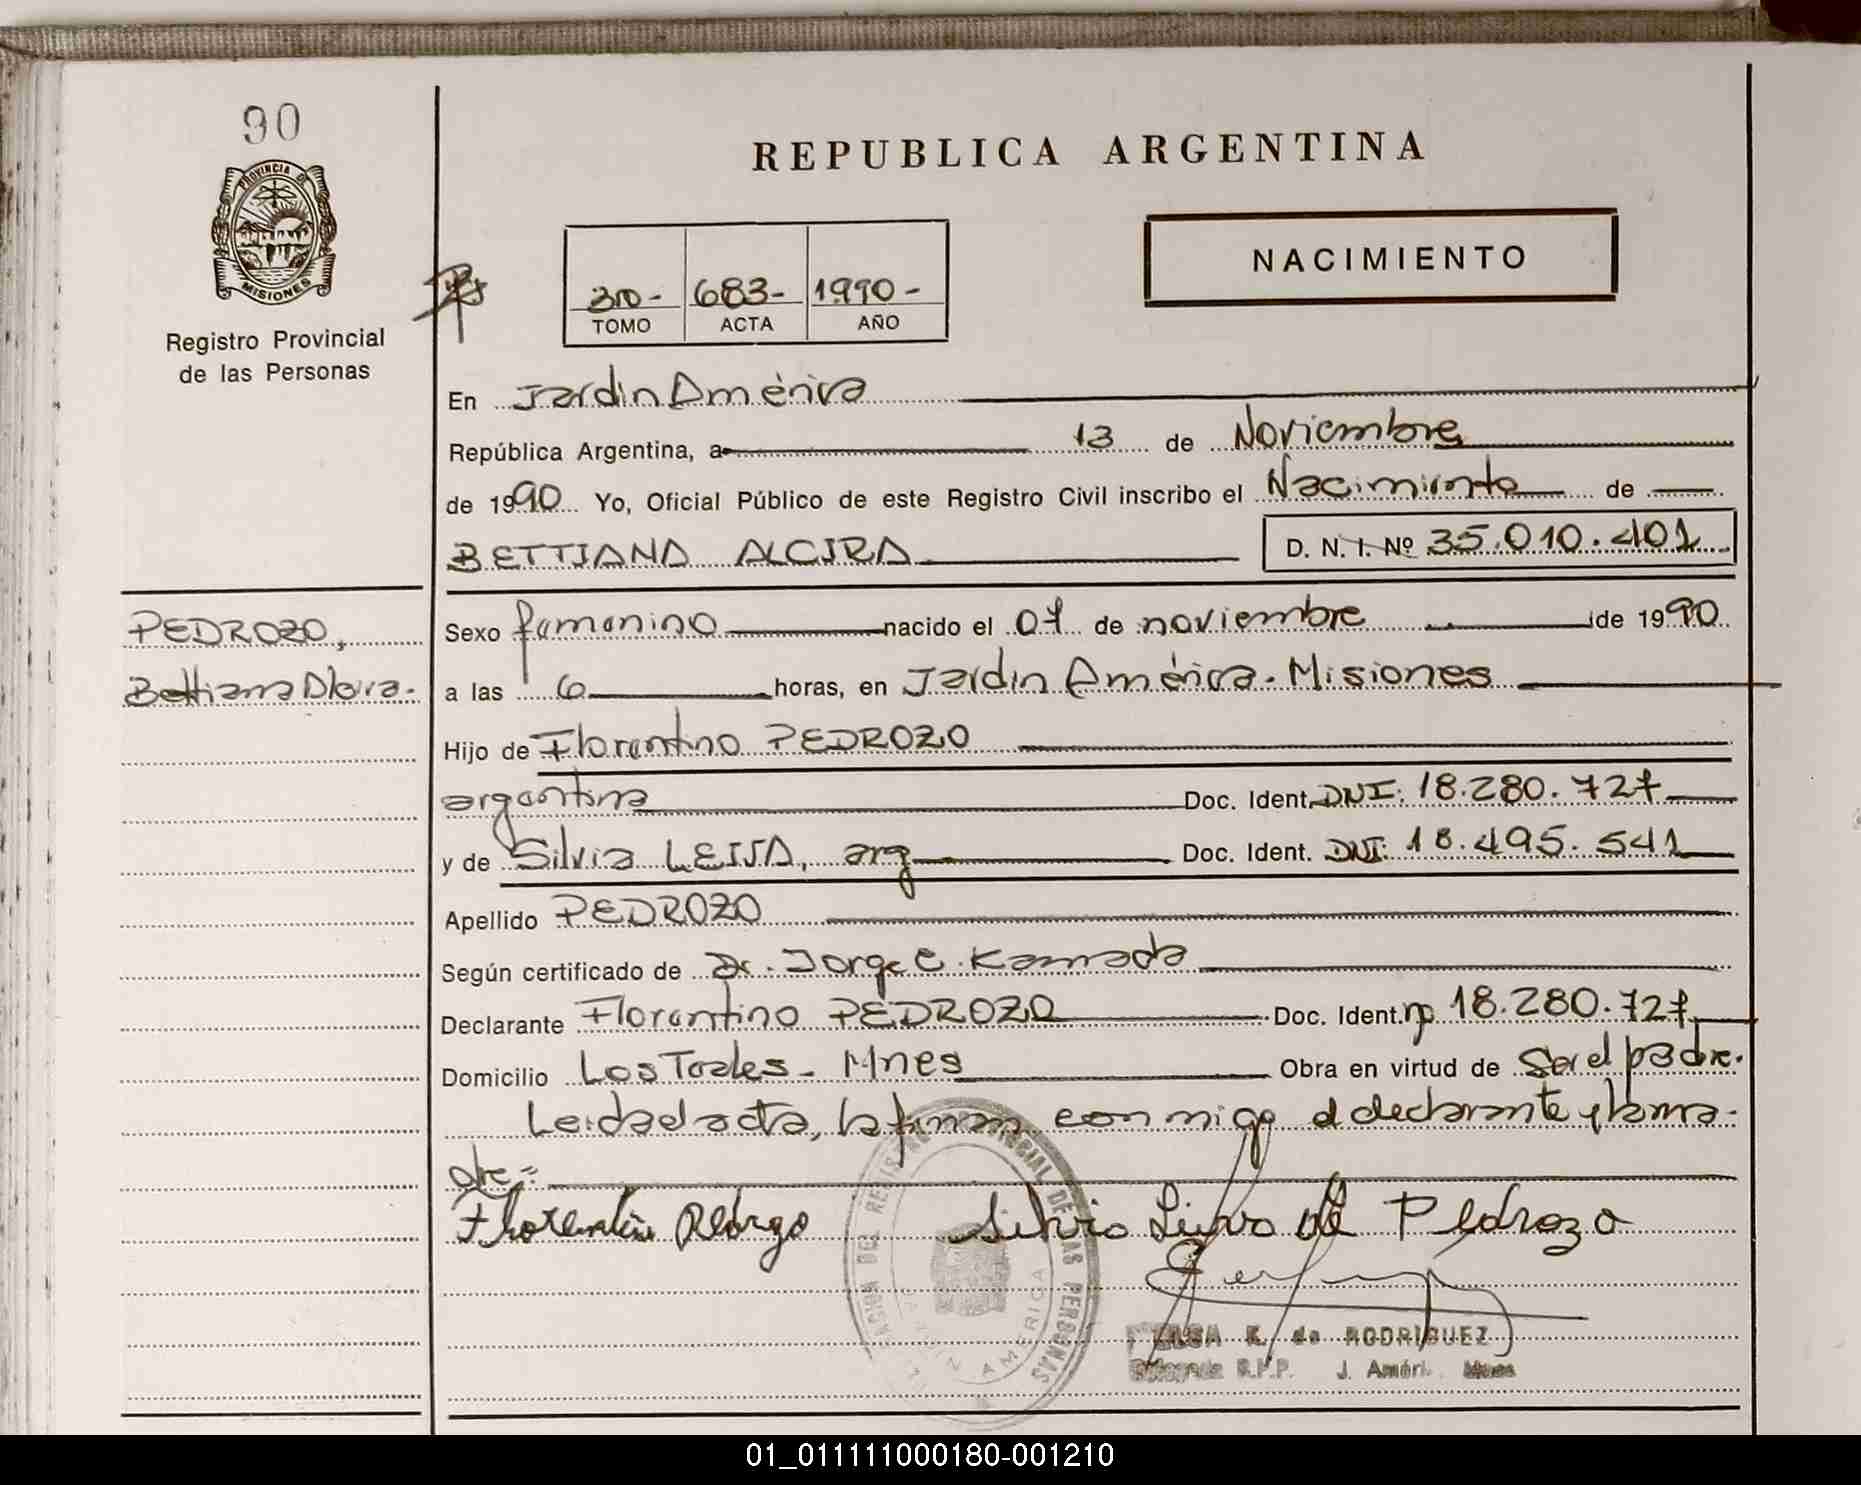 90
PROVINCIA DE
MISIONES
Registro Provincial
de las Personas
REPUBLICA ARGENTINA
NACIMIENTO
3ro- 683- 1990-
TOMO ACTA AÑO
En Jardin América
República Argentina, a 13 de Noviembre
de 1990 Yo, Oficial Público de este Registro Civil inscribo el Nacimiento de
BETTIANA ALCIRA D. N. I. Nº 35.010.401
PEDROZO,
Bettiana Alcira.
Sexo femenino nacido el 07 de noviembre de 1990
a las 6 horas, en Jardin América. Misiones
Hijo de Florentino PEDROZO
argentina Doc. Ident. DNI: 18.280.727
y de Silvia LEIVA, arg Doc. Ident. DNI: 18.495.541
Apellido PEDROZO
Según certificado de Dr. Jorge C. Kamada
Declarante Florentino PEDROZO Doc. Ident. 18.280.727
Domicilio Los Teales - Mnes Obra en virtud de Ser el padre.
Leida el acta, la firman conmigo el declarante y la ma-
dre=
Silvia Leiva de Pedrozo
DEL REGISTRO PROVINCIAL DE LAS PERSONAS
JARDIN AMERICA
ELSA E. de RODRIGUEZ
Delegada R.P.P. J. Améri. Mnes
01_011111000180-001210